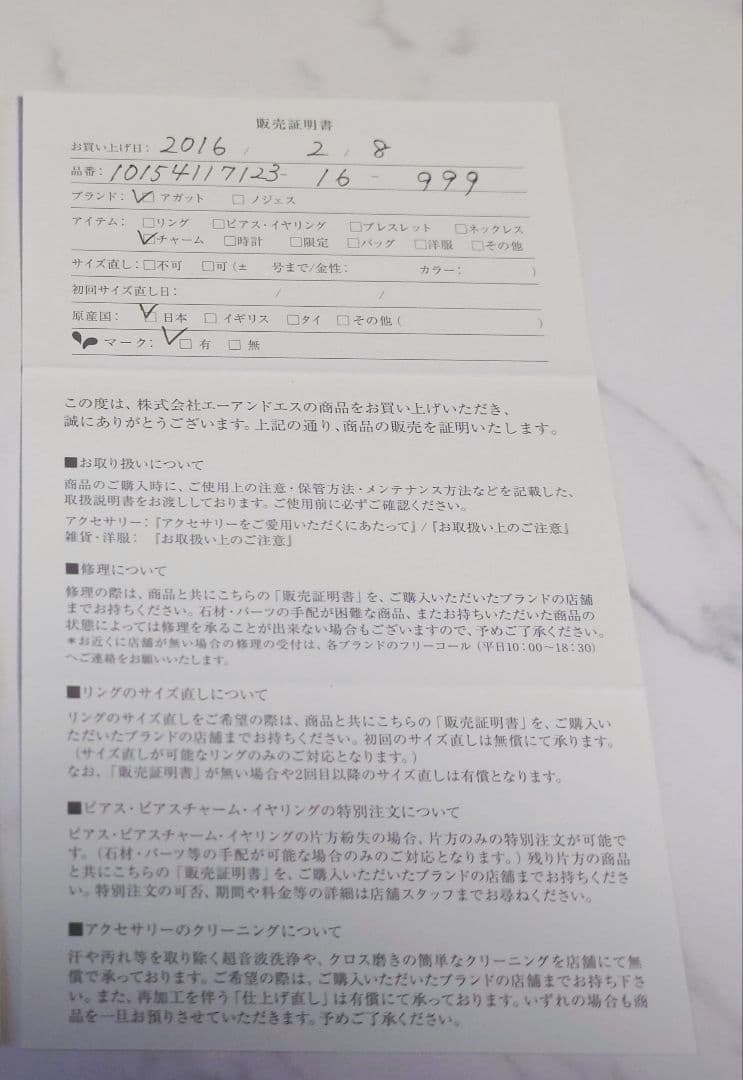 販売証明書
お買い上げ日: 2016 / 2 / 8
品番: 10154117123- 16 - 999
ブランド: ☑アガット □ノジェス
アイテム: □リング □ピアス・イヤリング □ブレスレット □ネックレス
☑チャーム □時計 □限定 □バッグ □洋服 □その他
サイズ直し: □不可 □可(± 号まで/金性: カラー: )
初回サイズ直し日: / /
原産国: ☑日本 □イギリス □タイ □その他( )
マーク: ☑有 □無
この度は、株式会社エーアンドエスの商品をお買い上げいただき、
誠にありがとうございます。上記の通り、商品の販売を証明いたします。
■お取り扱いについて
商品のご購入時に、ご使用上の注意・保管方法・メンテナンス方法などを記載した、
取扱説明書をお渡ししております。ご使用前に必ずご確認ください。
アクセサリー:『アクセサリーをご愛用いただくにあたって』/『お取扱い上のご注意』
雑貨・洋服: 『お取扱い上のご注意』
■修理について
修理の際は、商品と共にこちらの「販売証明書」を、ご購入いただいたブランドの店舗
までお持ちください。石材・パーツの手配が困難な商品、またお持ちいただいた商品の
状態によっては修理を承ることが出来ない場合もございますので、予めご了承ください。
*お近くに店舗が無い場合の修理の受付は、各ブランドのフリーコール(平日10:00~18:30)
へご連絡をお願いいたします。
■リングのサイズ直しについて
リングのサイズ直しをご希望の際は、商品と共にこちらの「販売証明書」を、ご購入い
ただいたブランドの店舗までお持ちください。初回のサイズ直しは無償にて承ります。
(サイズ直しが可能なリングのみのご対応となります。)
なお、「販売証明書」が無い場合や2回目以降のサイズ直しは有償となります。
■ピアス・ピアスチャーム・イヤリングの特別注文について
ピアス・ピアスチャーム・イヤリングの片方紛失の場合、片方のみの特別注文が可能で
す。(石材・パーツ等の手配が可能な場合のみのご対応となります。)残り片方の商品
と共にこちらの「販売証明書」を、ご購入いただいたブランドの店舗までお持ちくださ
い。特別注文の可否、期間や料金等の詳細は店舗スタッフまでお尋ねください。
■アクセサリーのクリーニングについて
汗や汚れ等を取り除く超音波洗浄や、クロス磨きの簡単なクリーニングを店舗にて無
償で承っております。ご希望の際は、ご購入いただいたブランドの店舗までお持ち下さ
い。また、再加工を伴う「仕上げ直し」は有償にて承っております。いずれの場合も商
品を一旦お預りさせていただきます。予めご了承ください。